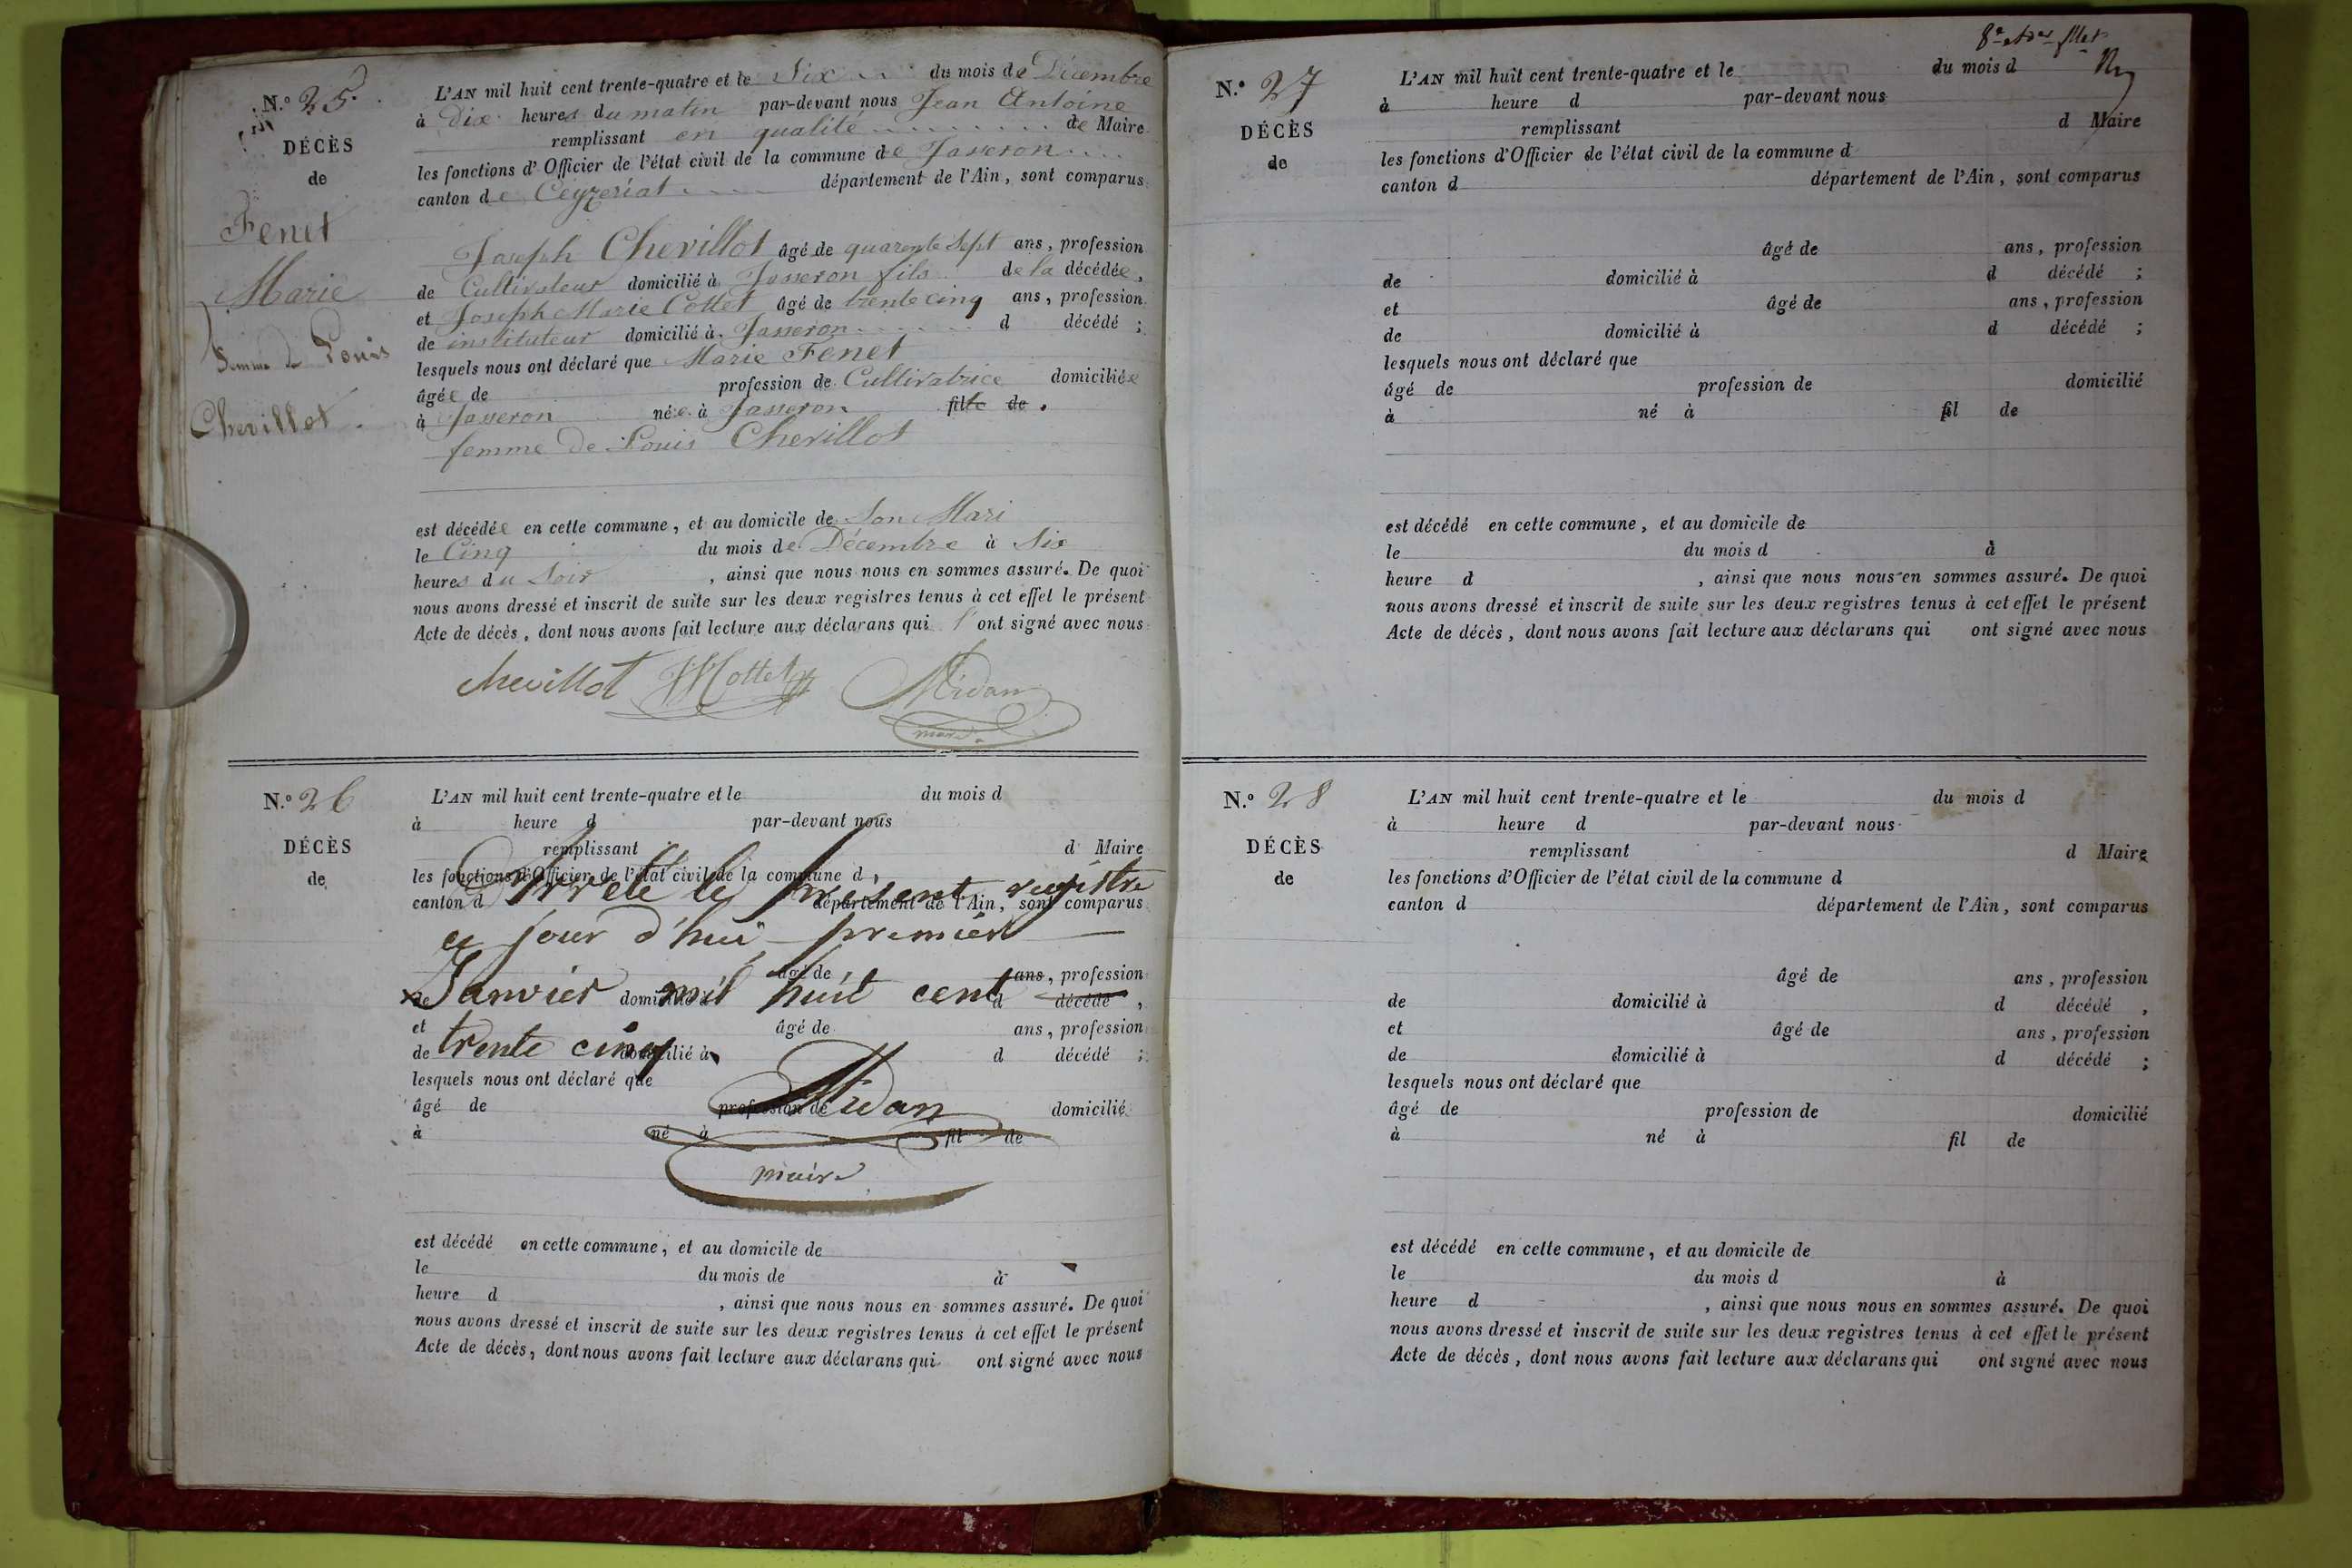 N.° 25.
DÉCÈS
de
Fenet
Marie
femme de Louis
Chevillot.
L'AN mil huit cent trente-quatre et le Six du mois de Décembre
à dix heures du matin par-devant nous Jean Antoine
remplissant en qualité de Maire
les fonctions d'Officier de l'état civil de la commune de Jasseron
canton de Ceyzeriat département de l'Ain, sont comparus
Joseph Chevillot âgé de quarente Sept ans, profession
de Cultivateur domicilié à Jasseron fils de la décédée,
et Joseph Marie Cottet âgé de trente cinq ans, profession
de instituteur domicilié à Jasseron d décédé ;
lesquels nous ont déclaré que Marie Fenet
âgée de profession de Cultivatrice domiciliée
à Jasseron née à Jasseron fille de .
femme de Louis Chevillot
est décédée en cette commune, et au domicile de Son Mari
le Cinq du mois de Décembre à Six
heures du Soir , ainsi que nous nous en sommes assuré. De quoi
nous avons dressé et inscrit de suite sur les deux registres tenus à cet effet le présent
Acte de décès, dont nous avons fait lecture aux déclarans qui l'ont signé avec nous
chevillot JMCottet Midan
maire
N.° 26
DÉCÈS
de
L'AN mil huit cent trente-quatre et le du mois d
à heure d par-devant nous
remplissant d Maire
les fonctions d'Officier de l'état civil de la commune d
Arrete le present registre
canton d département de l'Ain, sont comparus
ce jour d'hui premier
âgé de ans, profession
Janvier mil huit cent
de domicilié à d décédé ,
et âgé de ans, profession
trente cinq
de domicilié à d décédé ;
lesquels nous ont déclaré que
Midan
âgé de profession de domicilié
à né à fil de
maire
est décédé en cette commune, et au domicile de
le du mois de à
heure d , ainsi que nous nous en sommes assuré. De quoi
nous avons dressé et inscrit de suite sur les deux registres tenus à cet effet le présent
Acte de décès, dont nous avons fait lecture aux déclarans qui ont signé avec nous
N.° 27
DÉCÈS
de
L'AN mil huit cent trente-quatre et le du mois d
à heure d par-devant nous
remplissant d Maire
les fonctions d'Officier de l'état civil de la commune d
canton d département de l'Ain, sont comparus
âgé de ans, profession
de domicilié à d décédé ;
et âgé de ans, profession
de domicilié à d décédé ;
lesquels nous ont déclaré que
âgé de profession de domicilié
à né à fil de
est décédé en cette commune, et au domicile de
le du mois d à
heure d , ainsi que nous nous en sommes assuré. De quoi
nous avons dressé et inscrit de suite sur les deux registres tenus à cet effet le présent
Acte de décès, dont nous avons fait lecture aux déclarans qui ont signé avec nous
N.° 28
DÉCÈS
de
L'AN mil huit cent trente-quatre et le du mois d
à heure d par-devant nous
remplissant d Maire
les fonctions d'Officier de l'état civil de la commune d
canton d département de l'Ain, sont comparus
âgé de ans, profession
de domicilié à d décédé ,
et âgé de ans, profession
de domicilié à d décédé ;
lesquels nous ont déclaré que
âgé de profession de domicilié
à né à fil de
est décédé en cette commune, et au domicile de
le du mois d à
heure d , ainsi que nous nous en sommes assuré. De quoi
nous avons dressé et inscrit de suite sur les deux registres tenus à cet effet le présent
Acte de décès, dont nous avons fait lecture aux déclarans qui ont signé avec nous